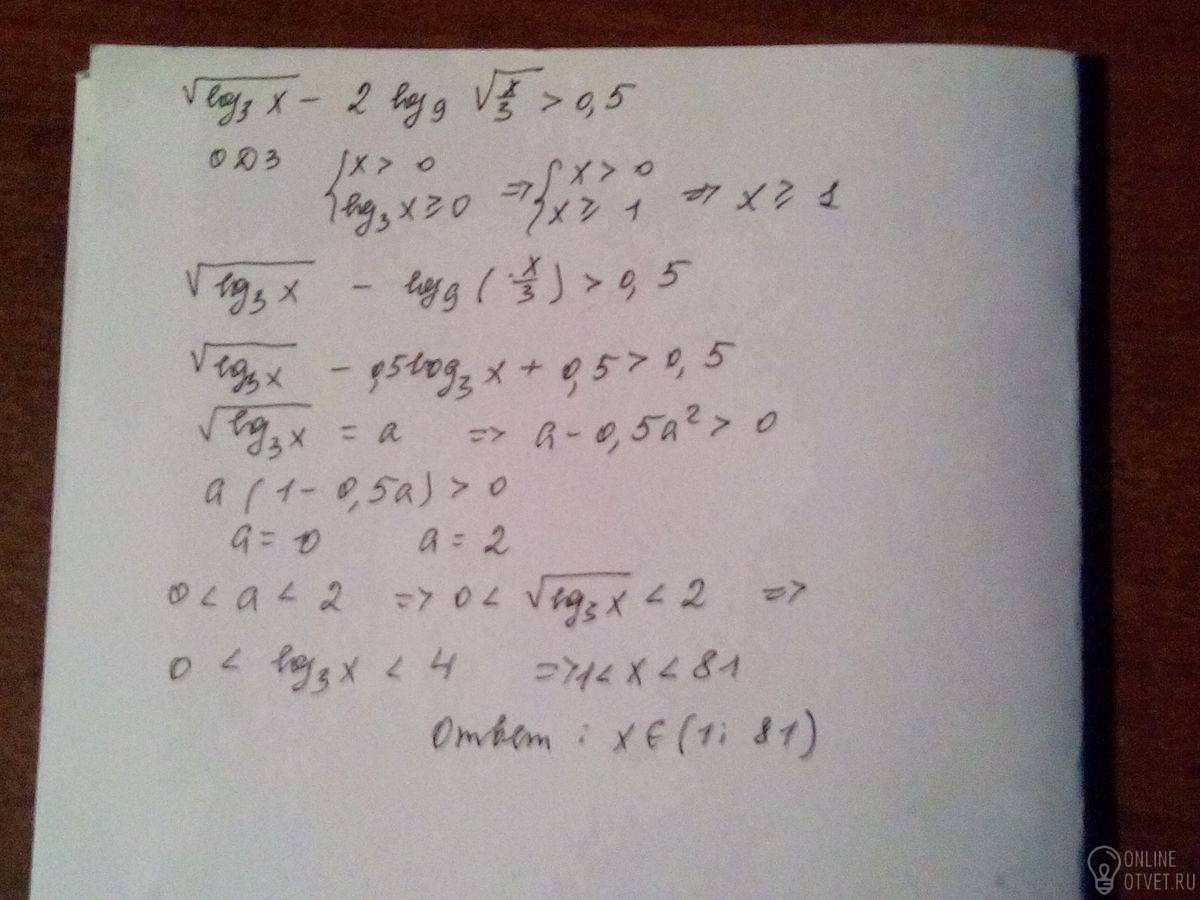 √(log₃ x) - 2 log₉ √(x/3) > 0,5
ОДЗ {x > 0 log₃ x ≥ 0 => {x > 0 x ≥ 1 => x ≥ 1
√(log₃ x) - log₉ (x/3) > 0,5
√(log₃ x) - 0,5 log₃ x + 0,5 > 0,5
√(log₃ x) = a => a - 0,5a² > 0
a (1 - 0,5a) > 0
a = 0 a = 2
0 < a < 2 => 0 < √(log₃ x) < 2 =>
0 < log₃ x < 4 => 1 < x < 81
Ответ : x ∈ (1; 81)
ONLINE
OTVET.RU